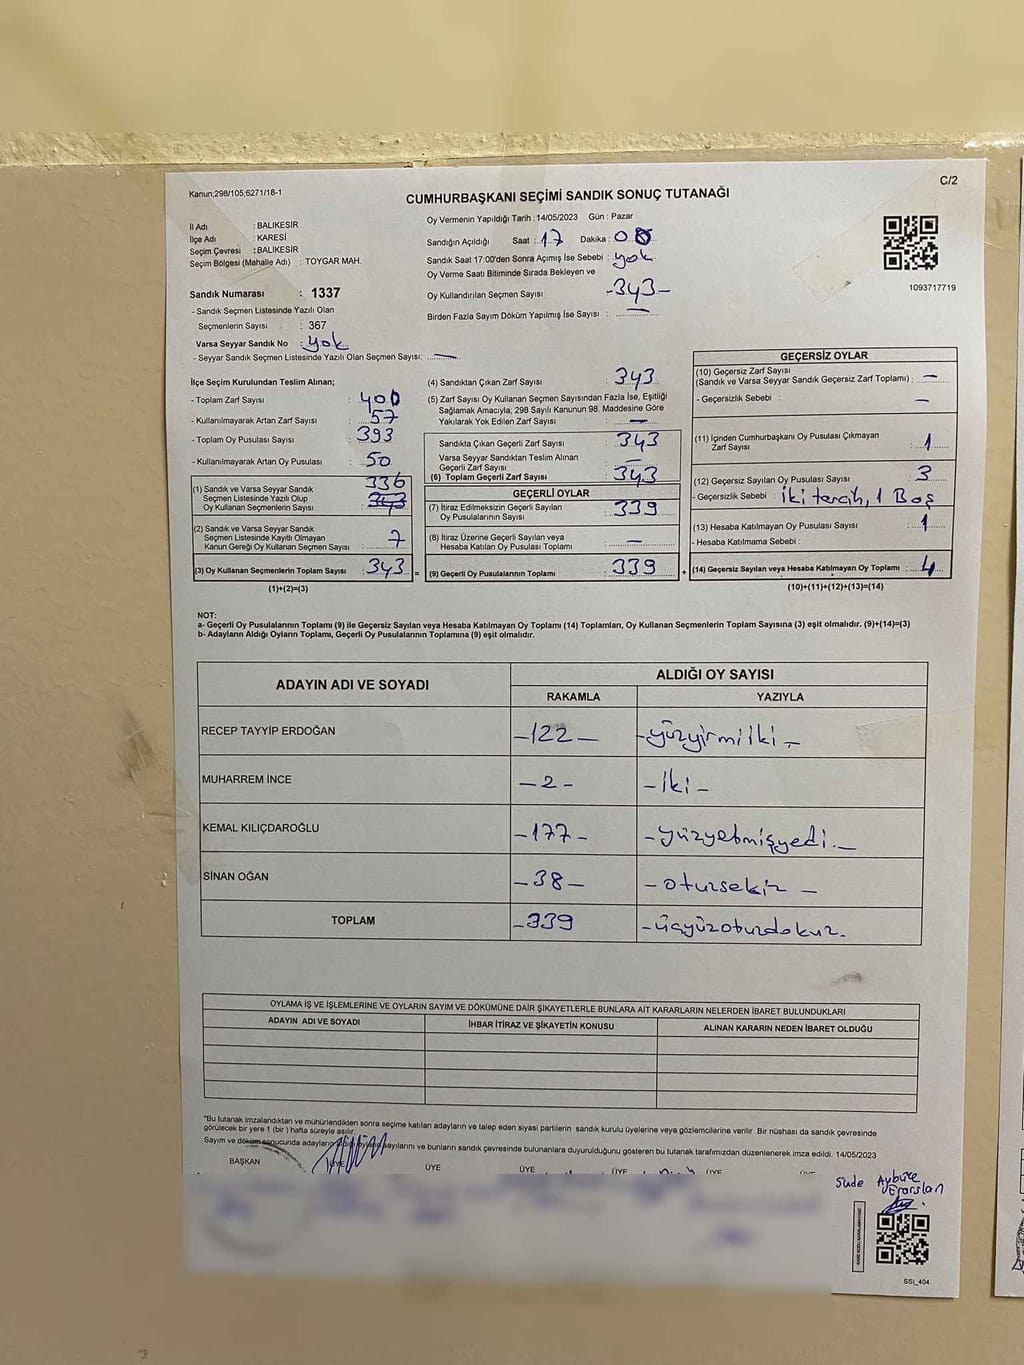 C/2
Kanun;298/105;6271/18-1
CUMHURBAŞKANI SEÇİMİ SANDIK SONUÇ TUTANAĞI
İl Adı : BALIKESİR
İlçe Adı : KARESİ
Seçim Çevresi : BALIKESİR
Seçim Bölgesi (Mahalle Adı) : TOYGAR MAH.
Sandık Numarası : 1337
- Sandık Seçmen Listesinde Yazılı Olan
Seçmenlerin Sayısı : 367
Varsa Seyyar Sandık No : yok
- Seyyar Sandık Seçmen Listesinde Yazılı Olan Seçmen Sayısı: —
Oy Vermenin Yapıldığı Tarih : 14/05/2023 Gün : Pazar
Sandığın Açıldığı Saat : 17 Dakika : 08
Sandık Saat 17:00'den Sonra Açımış İse Sebebi : yok
Oy Verme Saati Bitiminde Sırada Bekleyen ve
Oy Kullandırılan Seçmen Sayısı -343-
Birden Fazla Sayım Döküm Yapılmış İse Sayısı : —
1093717719
İlçe Seçim Kurulundan Teslim Alınan;
- Toplam Zarf Sayısı : 400
- Kullanılmayarak Artan Zarf Sayısı : 57
- Toplam Oy Pusulası Sayısı : 393
- Kullanılmayarak Artan Oy Pusulası : 50
(1) Sandık ve Varsa Seyyar Sandık 336
Seçmen Listesinde Yazılı Olup 343
Oy Kullanan Seçmenlerin Sayısı
(2) Sandık ve Varsa Seyyar Sandık
Seçmen Listesinde Kayıtlı Olmayan 7
Kanun Gereği Oy Kullanan Seçmen Sayısı
(3) Oy Kullanan Seçmenlerin Toplam Sayısı : 343 =
(1)+(2)=(3)
(4) Sandıktan Çıkan Zarf Sayısı : 343
(5) Zarf Sayısı Oy Kullanan Seçmen Sayısından Fazla İse, Eşitliği
Sağlamak Amacıyla, 298 Sayılı Kanunun 98. Maddesine Göre
Yakılarak Yok Edilen Zarf Sayısı : —
Sandıkta Çıkan Geçerli Zarf Sayısı : 343
Varsa Seyyar Sandıktan Teslim Alınan
Geçerli Zarf Sayısı : —
(6) Toplam Geçerli Zarf Sayısı : 343
GEÇERLİ OYLAR
(7) İtiraz Edilmeksizin Geçerli Sayılan : 339
Oy Pusulalarının Sayısı
(8) İtiraz Üzerine Geçerli Sayılan veya
Hesaba Katılan Oy Pusulası Toplamı : —
(9) Geçerli Oy Pusulalarının Toplamı : 339 +
GEÇERSİZ OYLAR
(10) Geçersiz Zarf Sayısı
(Sandık ve Varsa Seyyar Sandık Geçersiz Zarf Toplamı) : —
- Geçersizlik Sebebi : —
(11) İçinden Cumhurbaşkanı Oy Pusulası Çıkmayan
Zarf Sayısı : 1
(12) Geçersiz Sayılan Oy Pusulası Sayısı : 3
- Geçersizlik Sebebi : İki tercih, 1 Boş
(13) Hesaba Katılmayan Oy Pusulası Sayısı : 1
- Hesaba Katılmama Sebebi :
(14) Geçersiz Sayılan veya Hesaba Katılmayan Oy Toplamı : 4
(10)+(11)+(12)+(13)=(14)
NOT:
a- Geçerli Oy Pusulalarının Toplamı (9) ile Geçersiz Sayılan veya Hesaba Katılmayan Oy Toplamı (14) Toplamları, Oy Kullanan Seçmenlerin Toplam Sayısına (3) eşit olmalıdır. (9)+(14)=(3)
b- Adayların Aldığı Oyların Toplamı, Geçerli Oy Pusulalarının Toplamına (9) eşit olmalıdır.
ADAYIN ADI VE SOYADI ALDIĞI OY SAYISI
RAKAMLA YAZIYLA
RECEP TAYYİP ERDOĞAN -122- -yüzyirmiiki-
MUHARREM İNCE -2- -İki-
KEMAL KILIÇDAROĞLU -177- -yüzyetmişyedi.-
SİNAN OĞAN -38- -otuzsekiz-
TOPLAM -339 -üçyüzotuzdokuz.
OYLAMA İŞ VE İŞLEMLERİNE VE OYLARIN SAYIM VE DÖKÜMÜNE DAİR ŞİKAYETLERLE BUNLARA AİT KARARLARIN NELERDEN İBARET BULUNDUKLARI
ADAYIN ADI VE SOYADI İHBAR İTİRAZ VE ŞİKAYETİN KONUSU ALINAN KARARIN NEDEN İBARET OLDUĞU
*Bu tutanak imzalandıktan ve mühürlendikten sonra seçime katılan adayların ve talep eden siyasi partilerin sandık kurulu üyelerine veya gözlemcilerine verilir. Bir nüshası da sandık çevresinde
görülecek bir yere 1 (bir) hafta süreyle asılır.
Sayım ve döküm sonucunda adayların aldığı oyların sayılarını ve bunların sandık çevresinde bulunanlara duyurulduğunu gösteren bu tutanak tarafımızdan düzenlenerek imza edildi. 14/05/2023
BAŞKAN ÜYE ÜYE ÜYE ÜYE ÜYE
Sude Aybüke
SSI_404